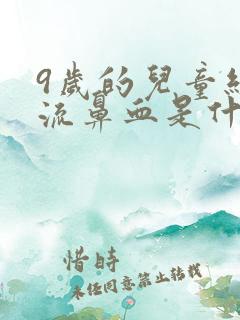 9歲的兒童
流鼻血是什
惜時
未经同意禁止转载